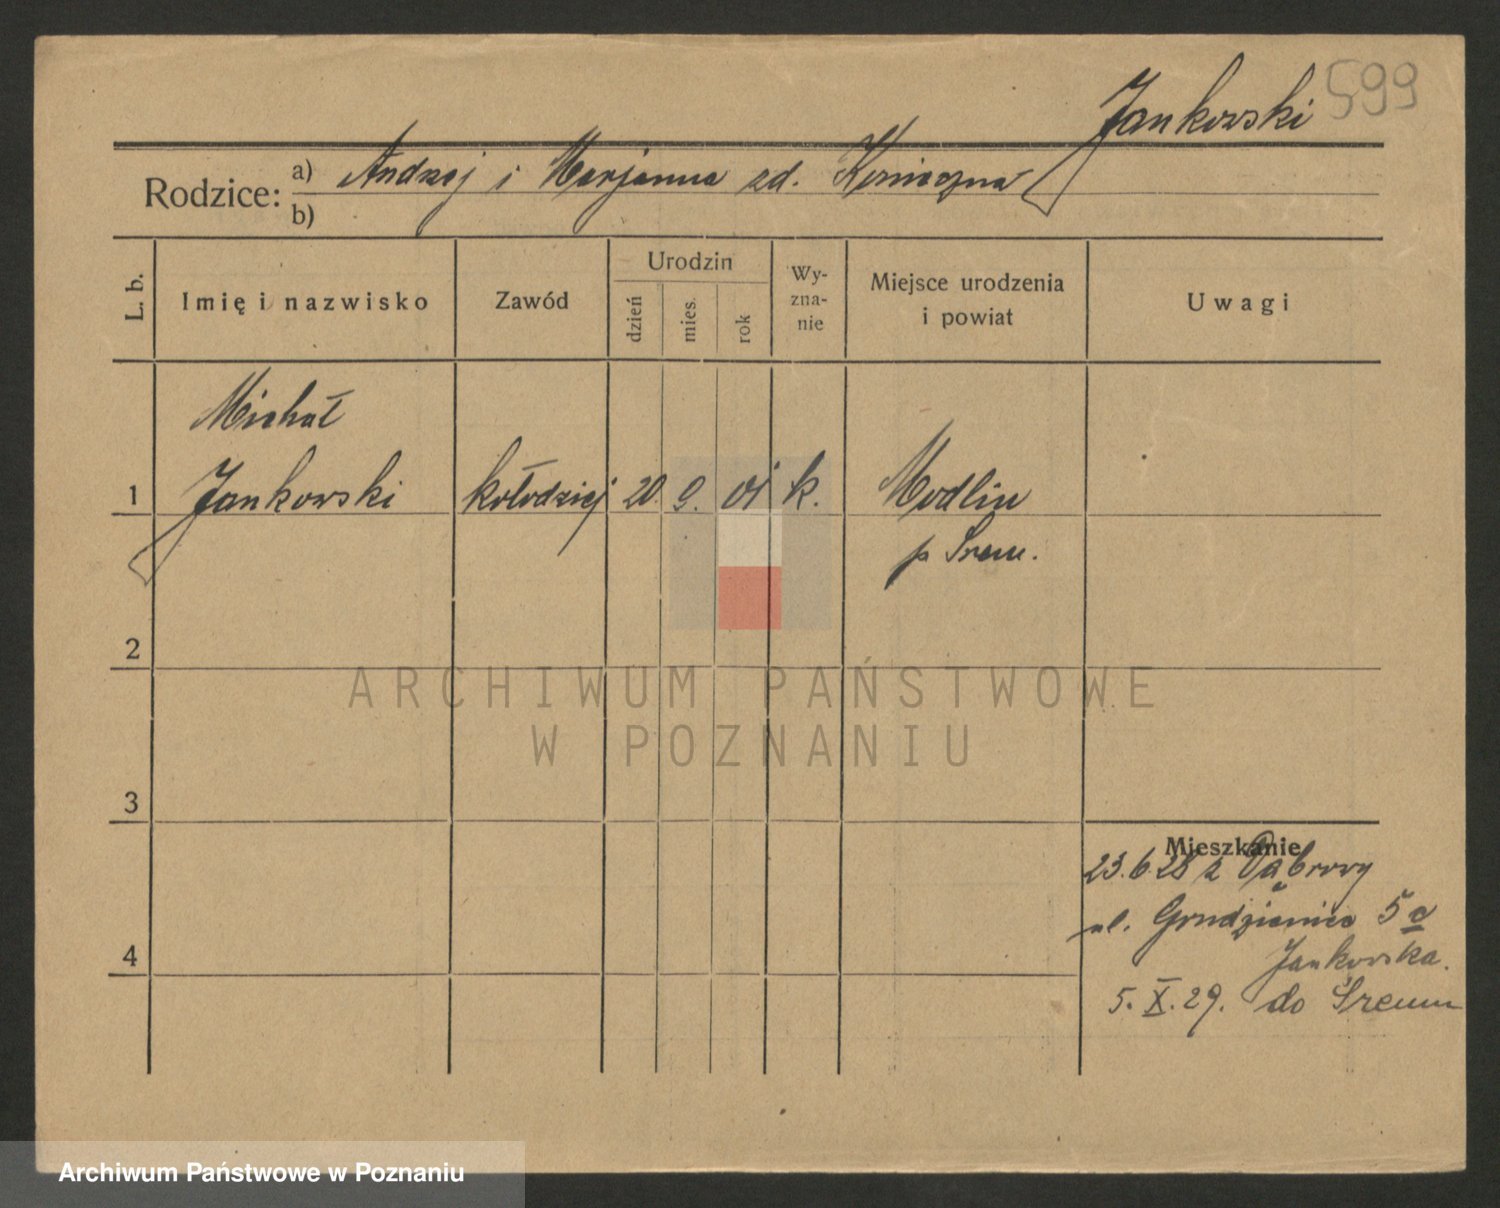 Jankowski 599
Rodzice: a) Andrzej i Marjanna zd. Konieczna
b)
L. b. Imię i nazwisko Zawód Urodzin dzień mies. rok Wy-zna-nie Miejsce urodzenia i powiat Uwagi
Michał
1 Jankowski kołodziej 20. 9. 01 k. Modlin
p Srem.
2
ARCHIWUM PAŃSTWOWE
W POZNANIU
3
Mieszkanie
23.6 28 z Dąbrowy
ul. Grudzieniec 5a
Jankowska.
4
5. X. 29. do Śremu
Archiwum Państwowe w Poznaniu